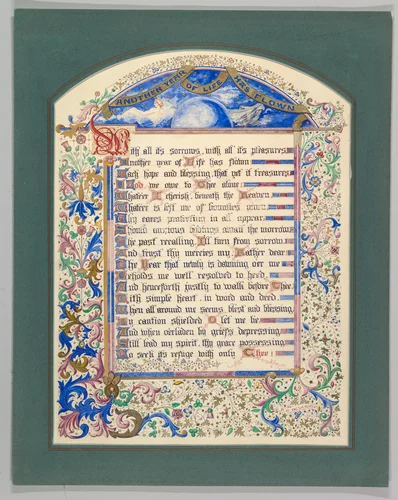 ANOTHER YEAR OF LIFE HAS FLOWN
With all its sorrows, with all its pleasures
Another year of Life has flown
Each hope and blessing, that yet it treasures
God, we owe to Thee alone
Whate'er I cherish, beneath the Heaven,
Whate'er is left me of bounties
Thy care protecting in all appear.
Should anxious the morrow
The past recalling, I'll turn from sorrow
And trust thy mercies my Father dear
The Year that newly is dawning o'er me
Beholds me well resolved to heed,
And henceforth justly to walk before Thee
With simple heart in word and deed.
When all around me seems blest and blessing,
By caution shielded O let me be
And when o'erladen by griefs depressing
Still lead my spirit, thy grace possessing
To seek its refuge with only Thee!